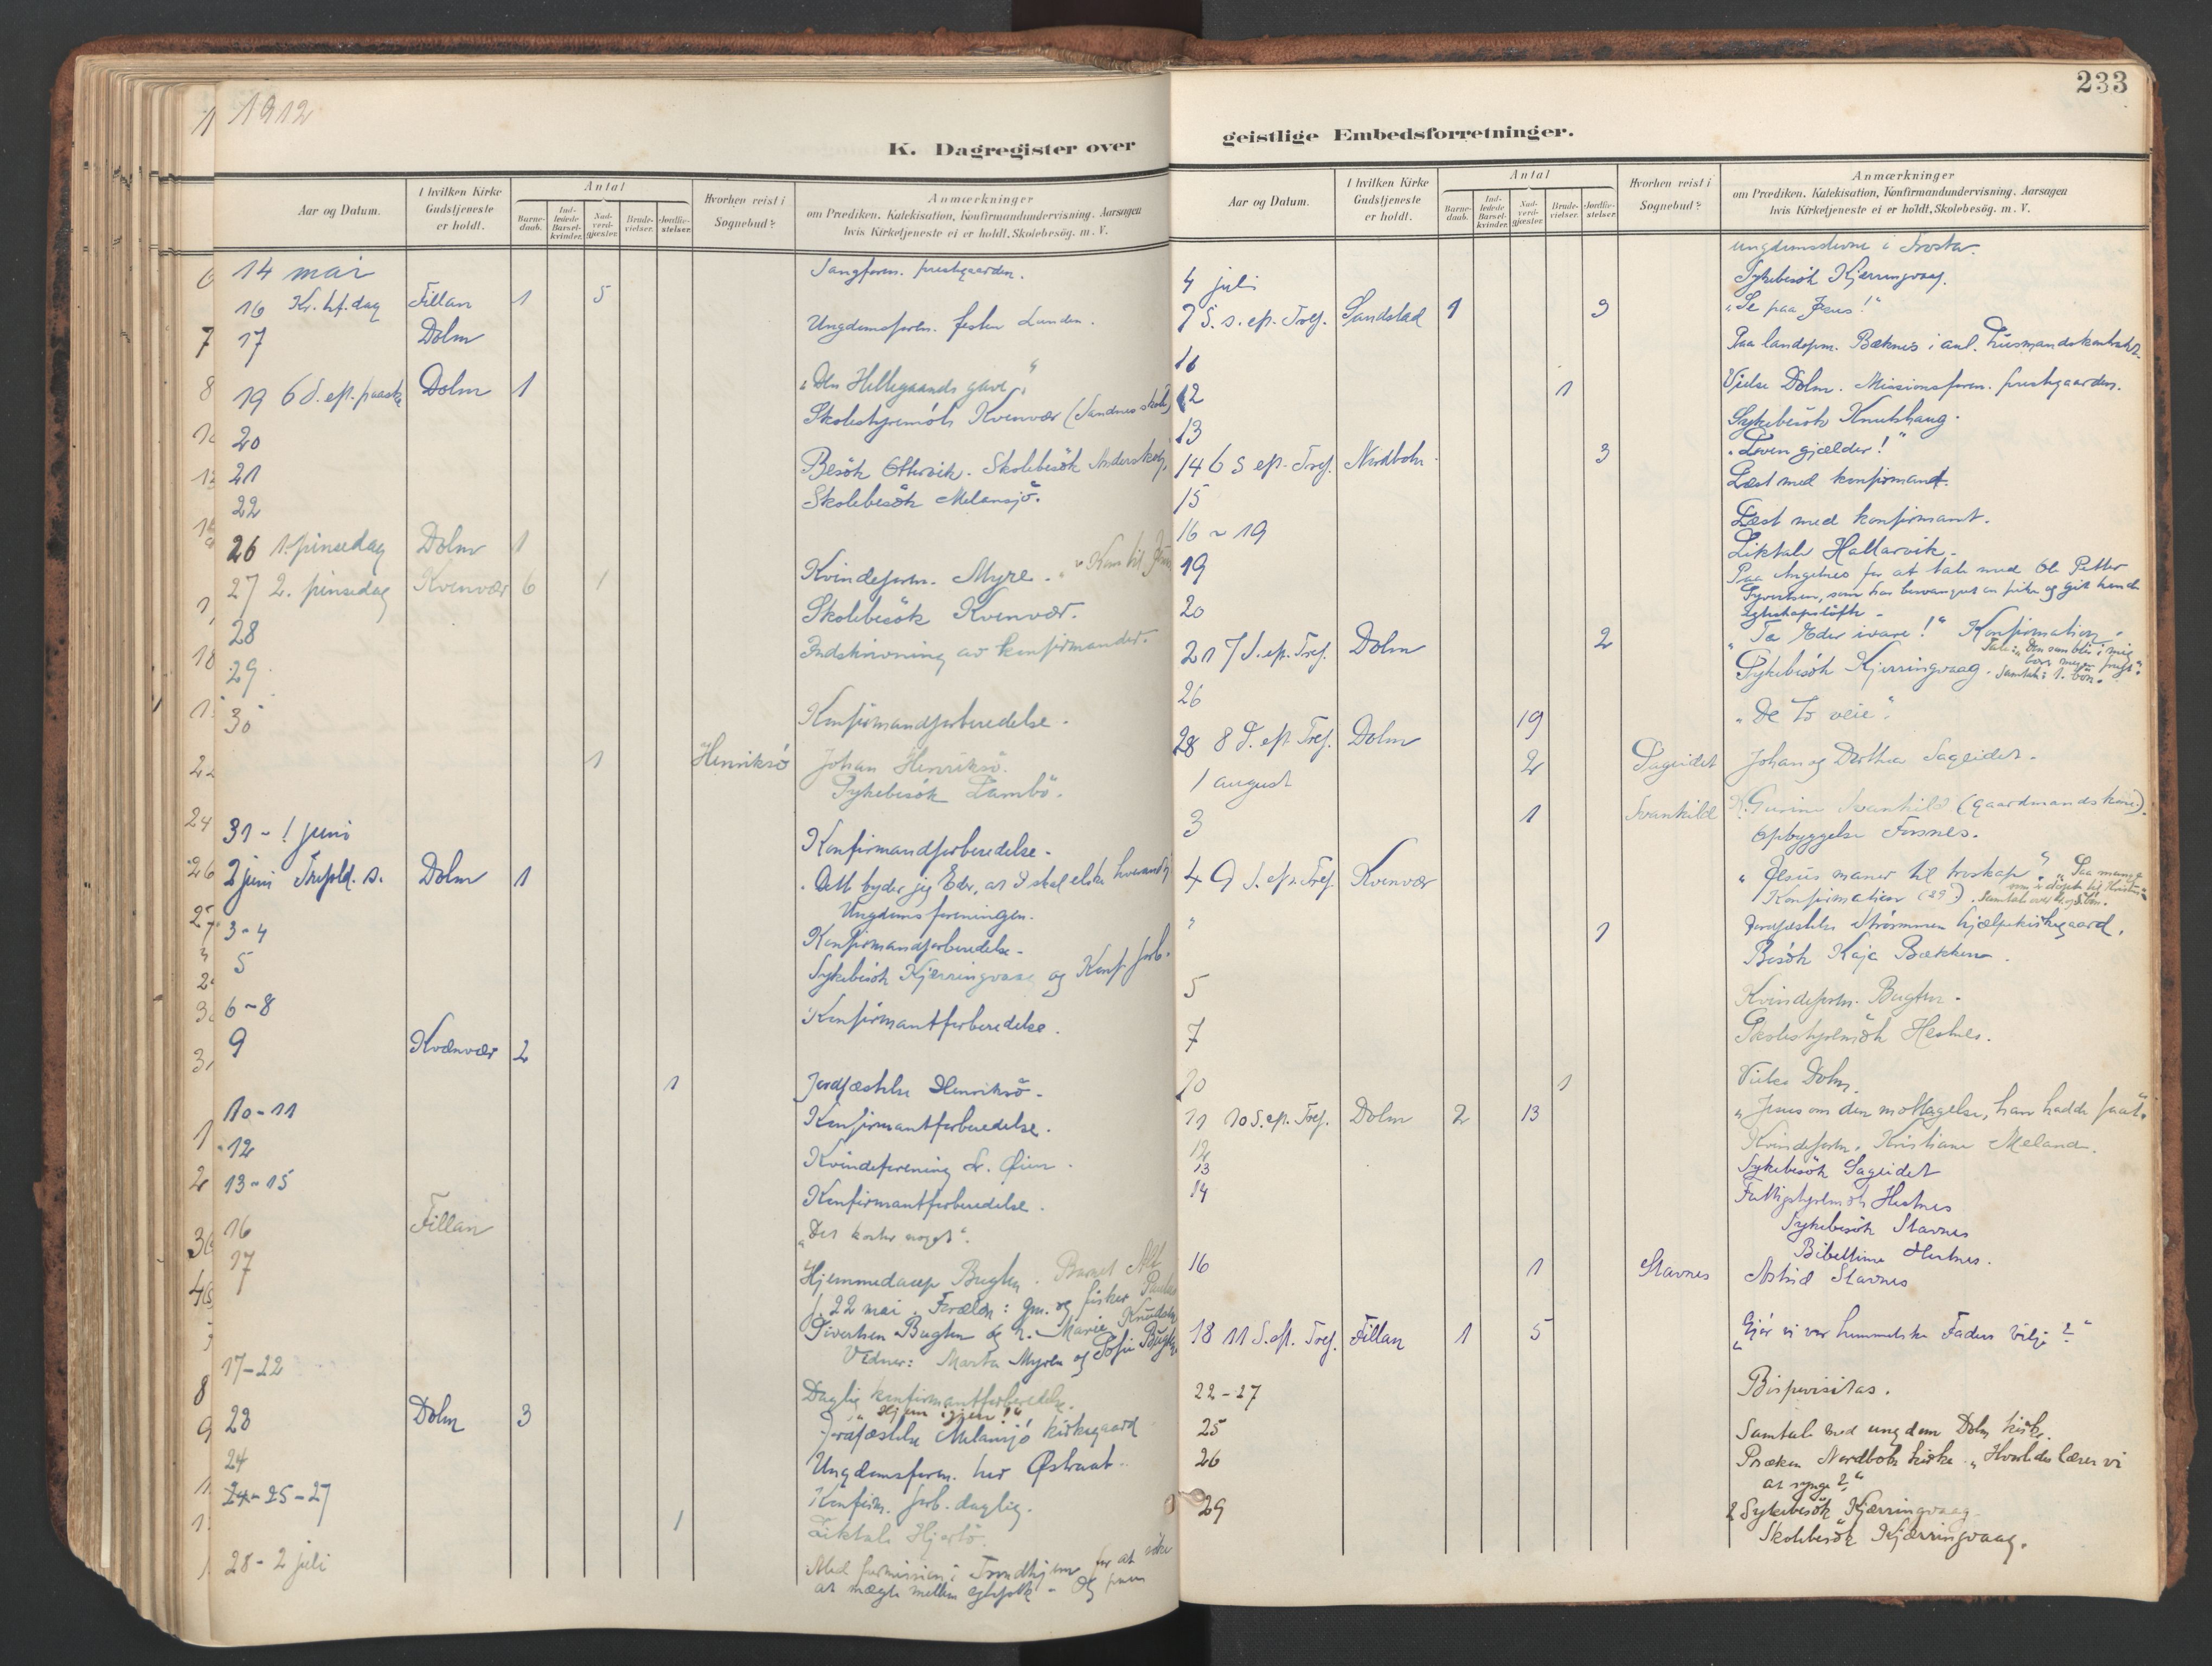 1912
K. Dagregister over
Aar og Datum.
I hvilken Kirke Gudstjeneste er holdt.
Antal
Barnedaab.
Indledede Barselkvinder.
Nadverdgjæster.
Brudevielser.
Jordfæstelser.
Hvorhen reist i Sognebud?
Anmærkninger
om Prædiken. Katekisation, Konfirmandundervisning. Aarsagen
hvis Kirketjeneste ei er holdt, Skolebesøg. m. V.
14 mai Sangforen. prestgaarden.
16 Kr. hf. dag Fillan 1 5
17 Dolm Ungdomsforen. festen Lunden.
19 6 S. eft. paaske Dolm 1 "Den Helligaands gave".
20 Skolestyremöte Kvenvær (Sandnes skole)
21 Besök Ottervik. Skolebesök
22 Skolebesök Melansjö.
26 1. pinsedag Dolm 1
27 2. pinsedag Kvenvær 6 1 Kvindeforen. Myre. "Kom til
28 Skolebesök Kvenvær.
29. Indskrivning av konfirmander.
30 Konfirmandforberedelse.
1 Henriksö Johan Henriksö.
Sykebesök Lambö.
31 - 1 juni Konfirmandforberedelse.
2 juni Trefold. s. Dolm 1 "Dette byder jeg Eder, at I skal elske hverandre"
Ungdomsforeningen.
3-4 Konfirmandforberedelse.
5 Sykebesök Kjærringvaag og Konf. forb.
6-8 Konfirmantforberedelse.
9 Kvænvær 2
1 Jordfæstelse Henriksö.
10-11 Konfirmantforberedelse.
12 Kvindeforening L. Øien.
13-15 Konfirmantforberedelse.
16 Fillan "Det koster noget".
17 Hjemmedaap Bugten. Barnet
f. 22 mai. Forældre: gm. og fisker
Sivertsen Bugten og h. Marie Knudsdtr
Vidner: Marta Myren og Sofie Bugten
17-22 Daglig konfirmantforberedelse.
23 Dolm 3 "Hjem igjen!"
Jordfæstelse Melansjö kirkegaard
24 Ungdomsforen. hos Østraat.
24-25-27 Konfirm. forb. daglig.
1 Liktale Hjertö.
28 - 2 juli Med permission i Trondhjem for at
at mægle mellem egtefolk - Og paa
233
geistlige Embedsforretninger.
Aar og Datum.
I hvilken Kirke Gudstjeneste er holdt.
Antal
Barnedaab.
Indledede Barselkvinder.
Nadverdgjæster.
Brudevielser.
Jordfæstelser.
Hvorhen reist i Sognebud?
Anmærkninger
om Prædiken. Katekisation, Konfirmandundervisning. Aarsagen
hvis Kirketjeneste ei er holdt, Skolebesøg. m. V.
ungdomsstevne i Frosta.
4 juli Sykebesök Kjærringvaag.
7 5. s. eft. Tref. Sandstad 1 3 "Se paa Jesus!"
10 Paa landopm. Bæknes i anl. husmandskontrakt.
12 1 Vielse Dolm. Missionsforen. prestgaarden.
13 Sykebesök Knutshaug.
14 6 S eft. Tref. Nordbotn 3 "Loven gjælder!"
15 Læst med konfirmant.
16 - 19 Læst med konfirmant.
19 Liktale Hallarvik.
20 Paa Angelnes for at tale med Ole Petter
Syvertsen, som har besvangret en pike og git hende
egteskapslöfte.
21 7 S. eft. Tref. Dolm 2 "Ta Eder ivare!" Konfirmation.
Tale: "Den som blir i mig
bær megen frugt".
26 Sykebesök Kjerringvaag. Samtale: 1. bön.
28 8 S. eft. Tref. Dolm 19 "De to veie".
1 august 2 Sageidet Johan og Dorthea Sageidet.
3 1 Svankild K. Gurine Svankild (gaardmandskone).
Opbyggelse Forsnes.
4 9 S. eft. Tref. Kvenvær "Jesus maner til troskap". "Saa mange
som er döpt til Kristus"
Konfirmation (29).
" 1 Jordfæstelse Strömmen hjælpekirkegaard.
Besök Kaja Bækken.
5 Kvindeforen. Bugten.
7 Skolestyremöte Hestnes.
10 1 Vielse Dolm.
11 10 S. eft. Tref. Dolm 2 13 "Jesus om den mottagelse, han hadde faat".
12 Kvindeforen. Kristiane Meland.
13 Sykebesök Sageidet
14 Fattigstyremöte Hestnes
Sykebesök Stavnes
Bibeltime Hestnes.
16 1 Stavnes Astrid Stavnes
18 11 S. eft. Tref. Fillan 1 5 "Gjör vi vor himmelske Faders vilje?"
22-27 Bispevisitas.
25 Samtale med ungdom Dolm kirke.
26 Præken Nordbotn kirke. "Hvorledes lærer vi
at synge?"
29 2 Sykebesök Kjærringvaag
Skolebesök Kjærringvaag.